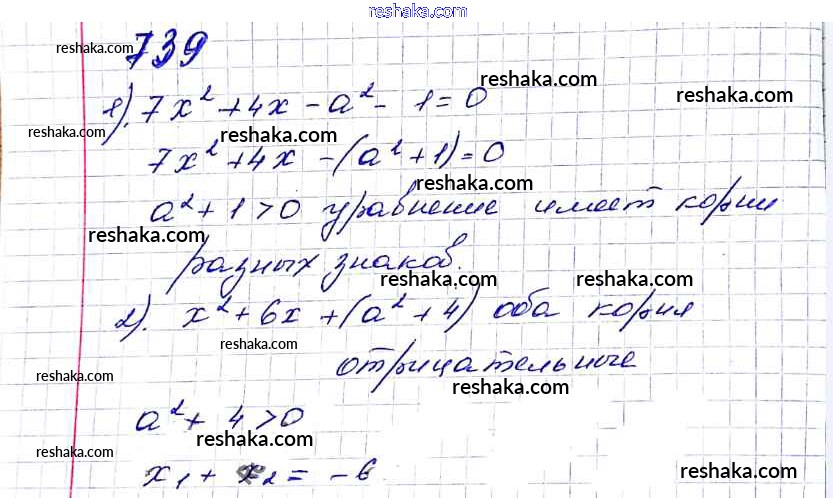 reshaka.com
739
reshaka.com
reshaka.com
reshaka.com
1). 7x² + 4x - a² - 1 = 0
reshaka.com
reshaka.com
7x² + 4x - (a² + 1) = 0
reshaka.com
a² + 1 > 0 уравнение имеет корни
reshaka.com
разных знаков.
reshaka.com
reshaka.com
2). x² + 6x + (a² + 4) оба корня
reshaka.com
отрицательные
reshaka.com
reshaka.com
a² + 4 > 0
reshaka.com
reshaka.com
x₁ + x₂ = -6
reshaka.com
reshaka.com